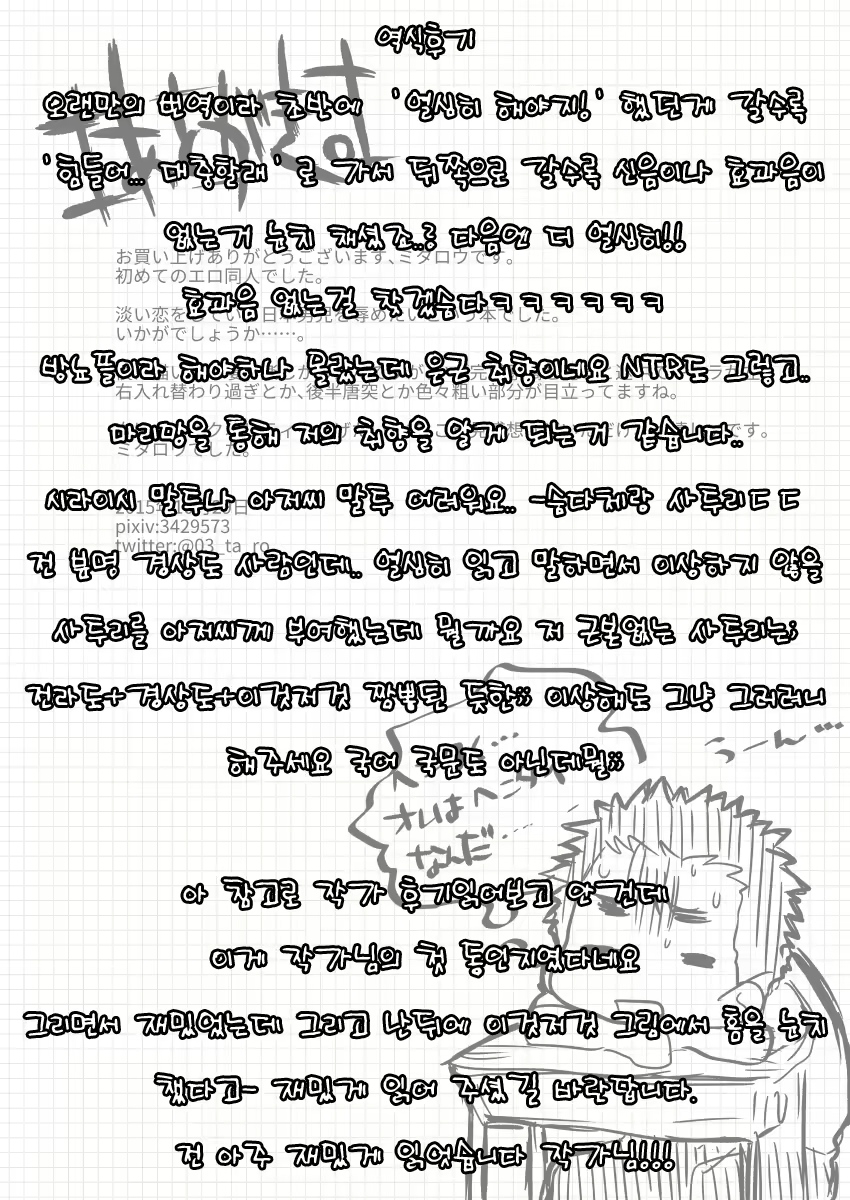 역식후기
오랜만의 번역이라 초반에 '열심히 해야지!' 했던게 갈수록
'힘들어... 대충할래'로 가서 뒤쪽으로 갈수록 신음이나 효과음이
없는거 눈치 채셨죠..ㅎ 다음엔 더 열심히!!
효과음 없는걸 찾겠슴다ㅋㅋㅋㅋㅋㅋ
방뇨플이라 해야하나 몰랐는데 은근 취향이네요 NTR도 그렇고..
마리망을 통해 저의 취향을 알게 되는거 같습니다..
시라이시 말투나 아저씨 말투 어려워요.. -슴다체랑 사투리ㄷㄷ
전 분명 경상도 사람인데.. 열심히 읽고 말하면서 이상하지 않을
사투리를 아저씨께 부여했는데 뭘까요 저 근본없는 사투리는;
전라도+경상도+이것저것 짬뽕된 듯한;; 이상해도 그냥 그러려니
해주세요 국어 국문도 아닌데뭘;;
아 참고로 작가 후기읽어보고 안 건데
이게 작가님의 첫 동인지였다네요
그리면서 재밌었는데 그리고 난뒤에 이것저것 그림에서 흠을 눈치
챘다고~ 재밌게 읽어 주셨길 바란답니다.
전 아주 재밌게 읽었습니다 작가님!!!
お買い上げありがとうございます、ミタロウです。
初めてのエロ同人でした。
いかがでしょうか……。
右入れ替わり過ぎとか、後半唐突とか色々粗い部分が目立ってますね。
ミタロウでした。
pixiv:3429573
twitter:@03_ta_ro
うーん…
オレはヘンタイ
なんだ…